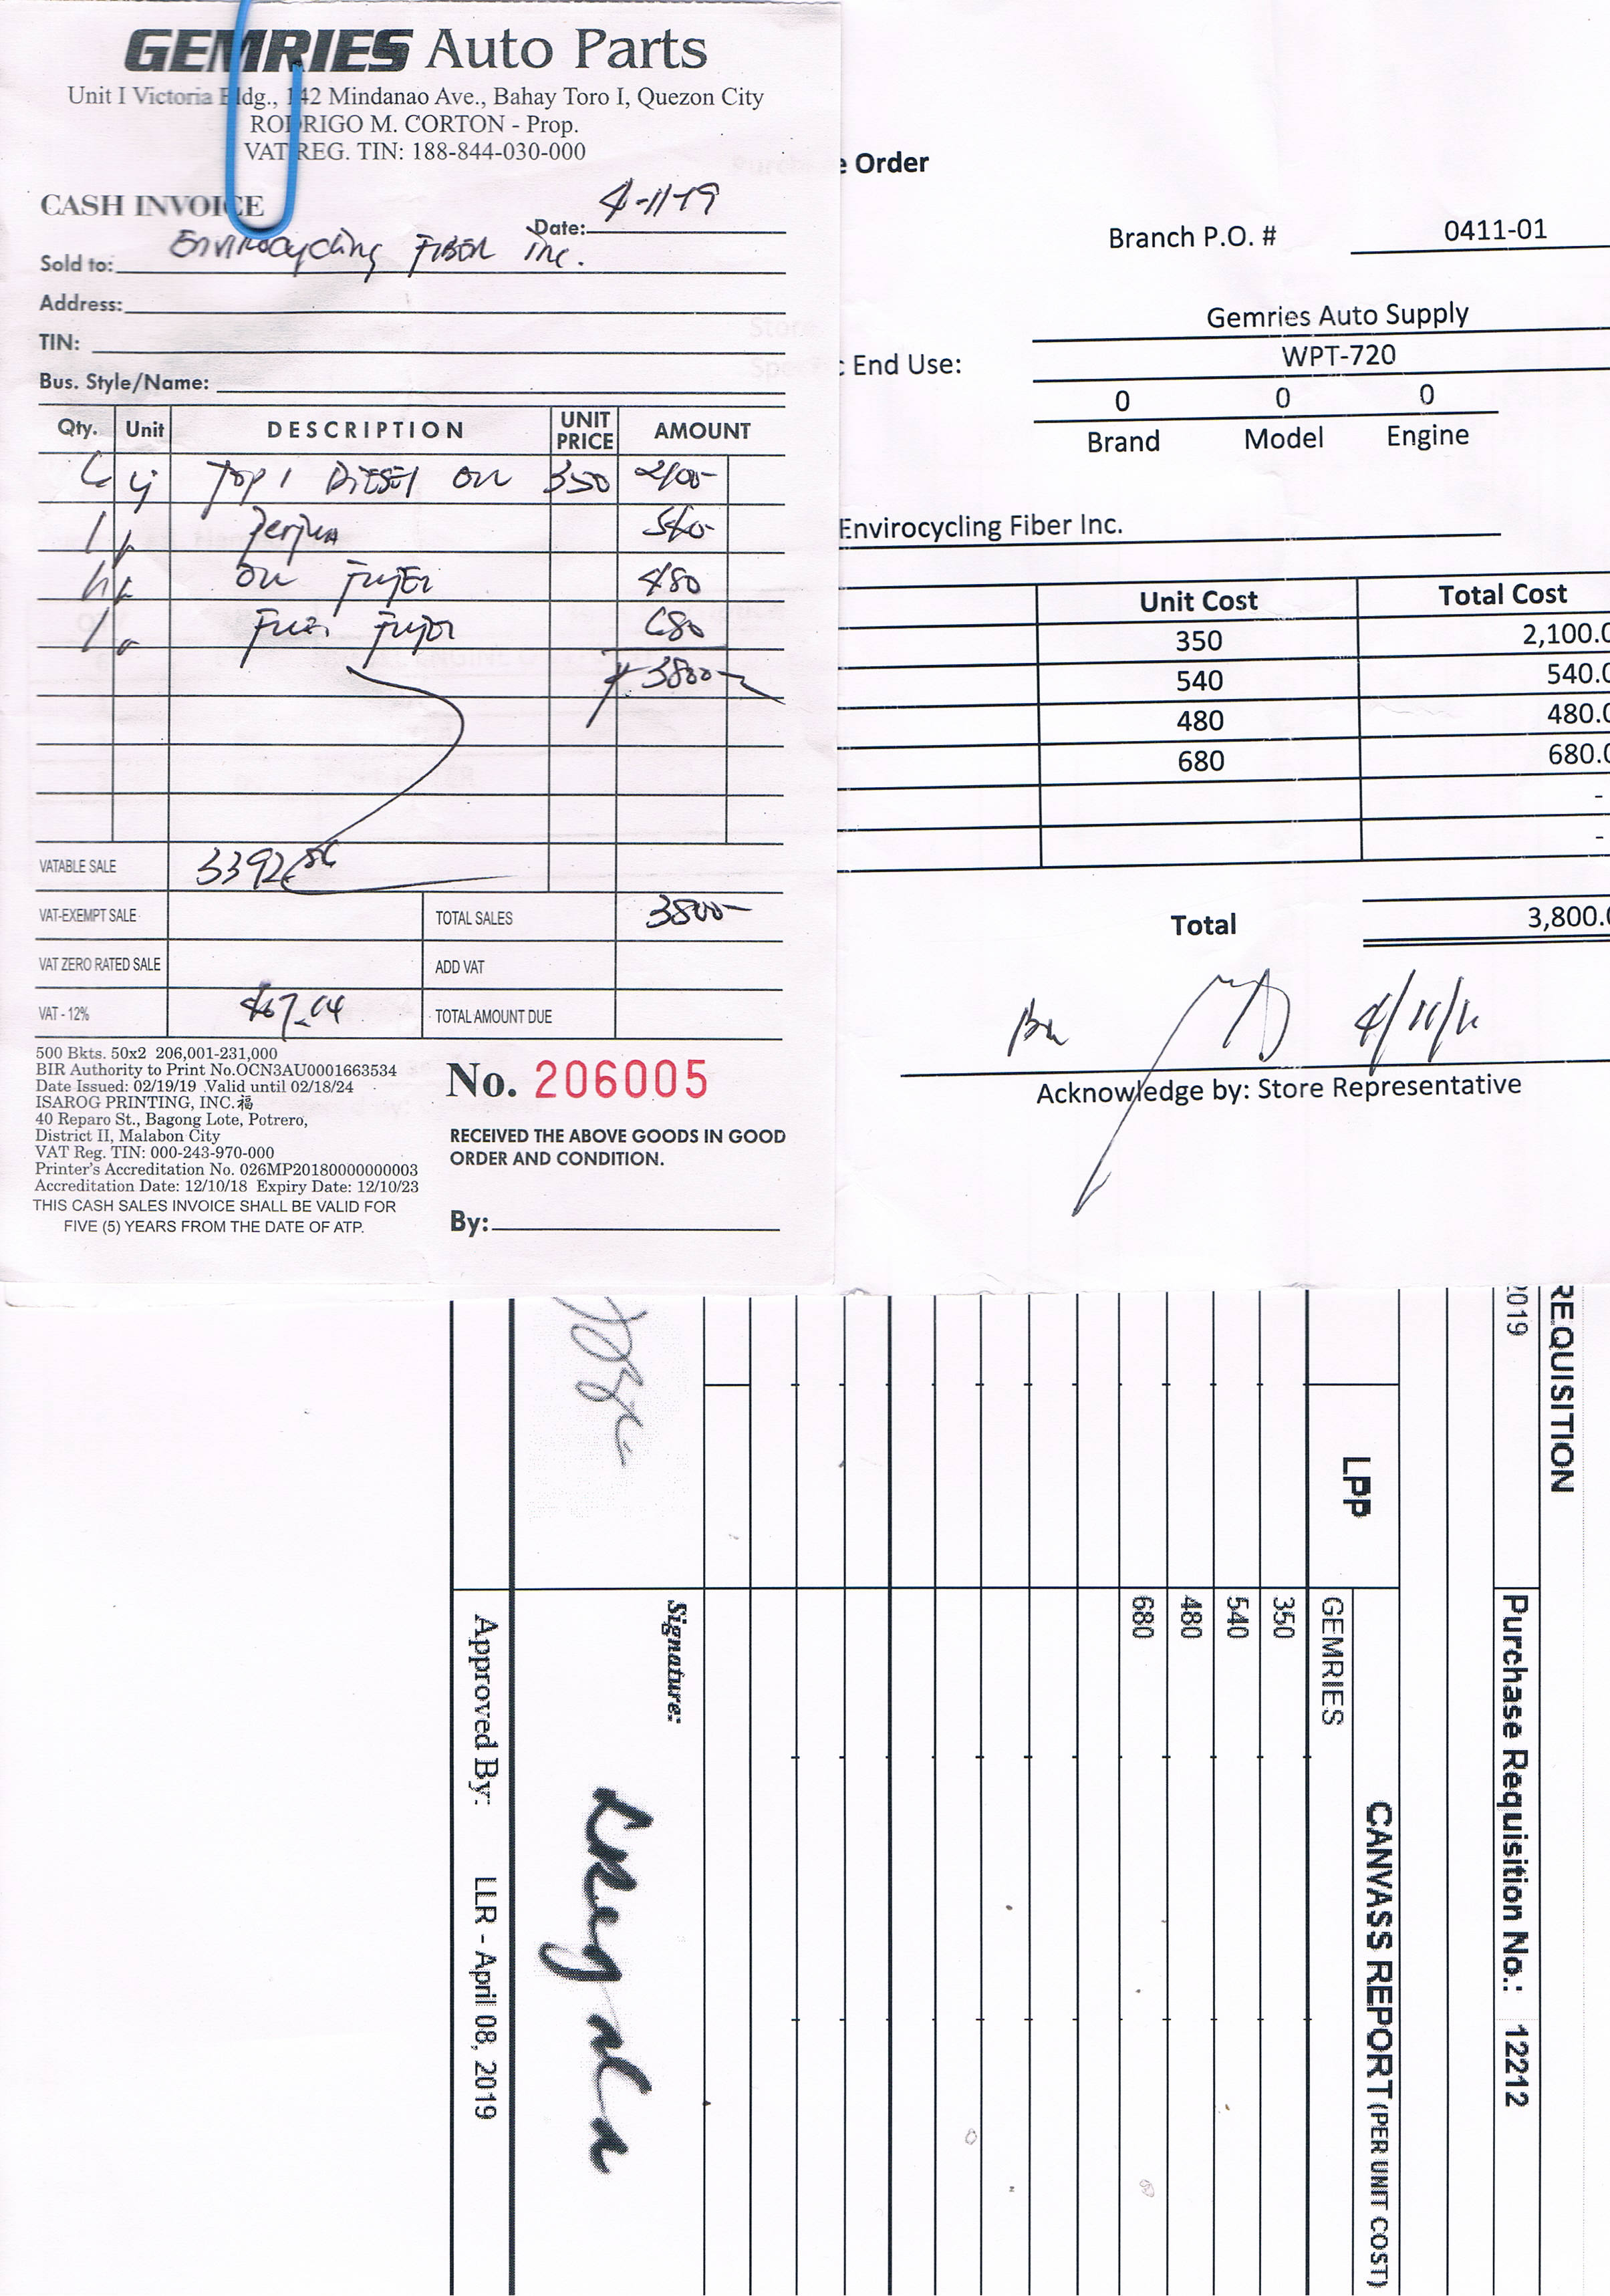 GEMRIES Auto Parts
Unit I Victoria Bldg., 142 Mindanao Ave., Bahay Toro I, Quezon City
RODRIGO M. CORTON - Prop.
VAT REG. TIN: 188-844-030-000
CASH INVOICE
Date: 4-11-19
Sold to: Envirocycling FIBER Inc.
Address:
TIN:
Bus. Style/Name:
Qty. Unit DESCRIPTION UNIT PRICE AMOUNT
TOP 1 DIESEL 350 2100-
1 540-
480
1 680
3800-
VATABLE SALE 3392.86
VAT-EXEMPT SALE TOTAL SALES 3800-
VAT ZERO RATED SALE ADD VAT
VAT - 12% 407.04 TOTAL AMOUNT DUE
500 Bkts. 50x2 206,001-231,000
BIR Authority to Print No.OCN3AU0001663534
Date Issued: 02/19/19 Valid until 02/18/24
ISAROG PRINTING, INC.福
40 Reparo St., Bagong Lote, Potrero,
District II, Malabon City
VAT Reg. TIN: 000-243-970-000
Printer's Accreditation No. 026MP20180000000003
Accreditation Date: 12/10/18 Expiry Date: 12/10/23
THIS CASH SALES INVOICE SHALL BE VALID FOR
FIVE (5) YEARS FROM THE DATE OF ATP.
No. 206005
RECEIVED THE ABOVE GOODS IN GOOD
ORDER AND CONDITION.
By:
e Order
Branch P.O. # 0411-01
Gemries Auto Supply
c End Use: WPT-720
0 0 0
Brand Model Engine
Envirocycling Fiber Inc.
Unit Cost Total Cost
350 2,100.0
540 540.0
480 480.0
680 680.0
-
-
Total 3,800.0
Acknowledge by: Store Representative
REQUISITION
2019 Purchase Requisition No.: 12212
CANVASS REPORT (PER UNIT COST)
LPP GEMRIES
350
540
480
680
Signature:
Approved By: LLR - April 08, 2019